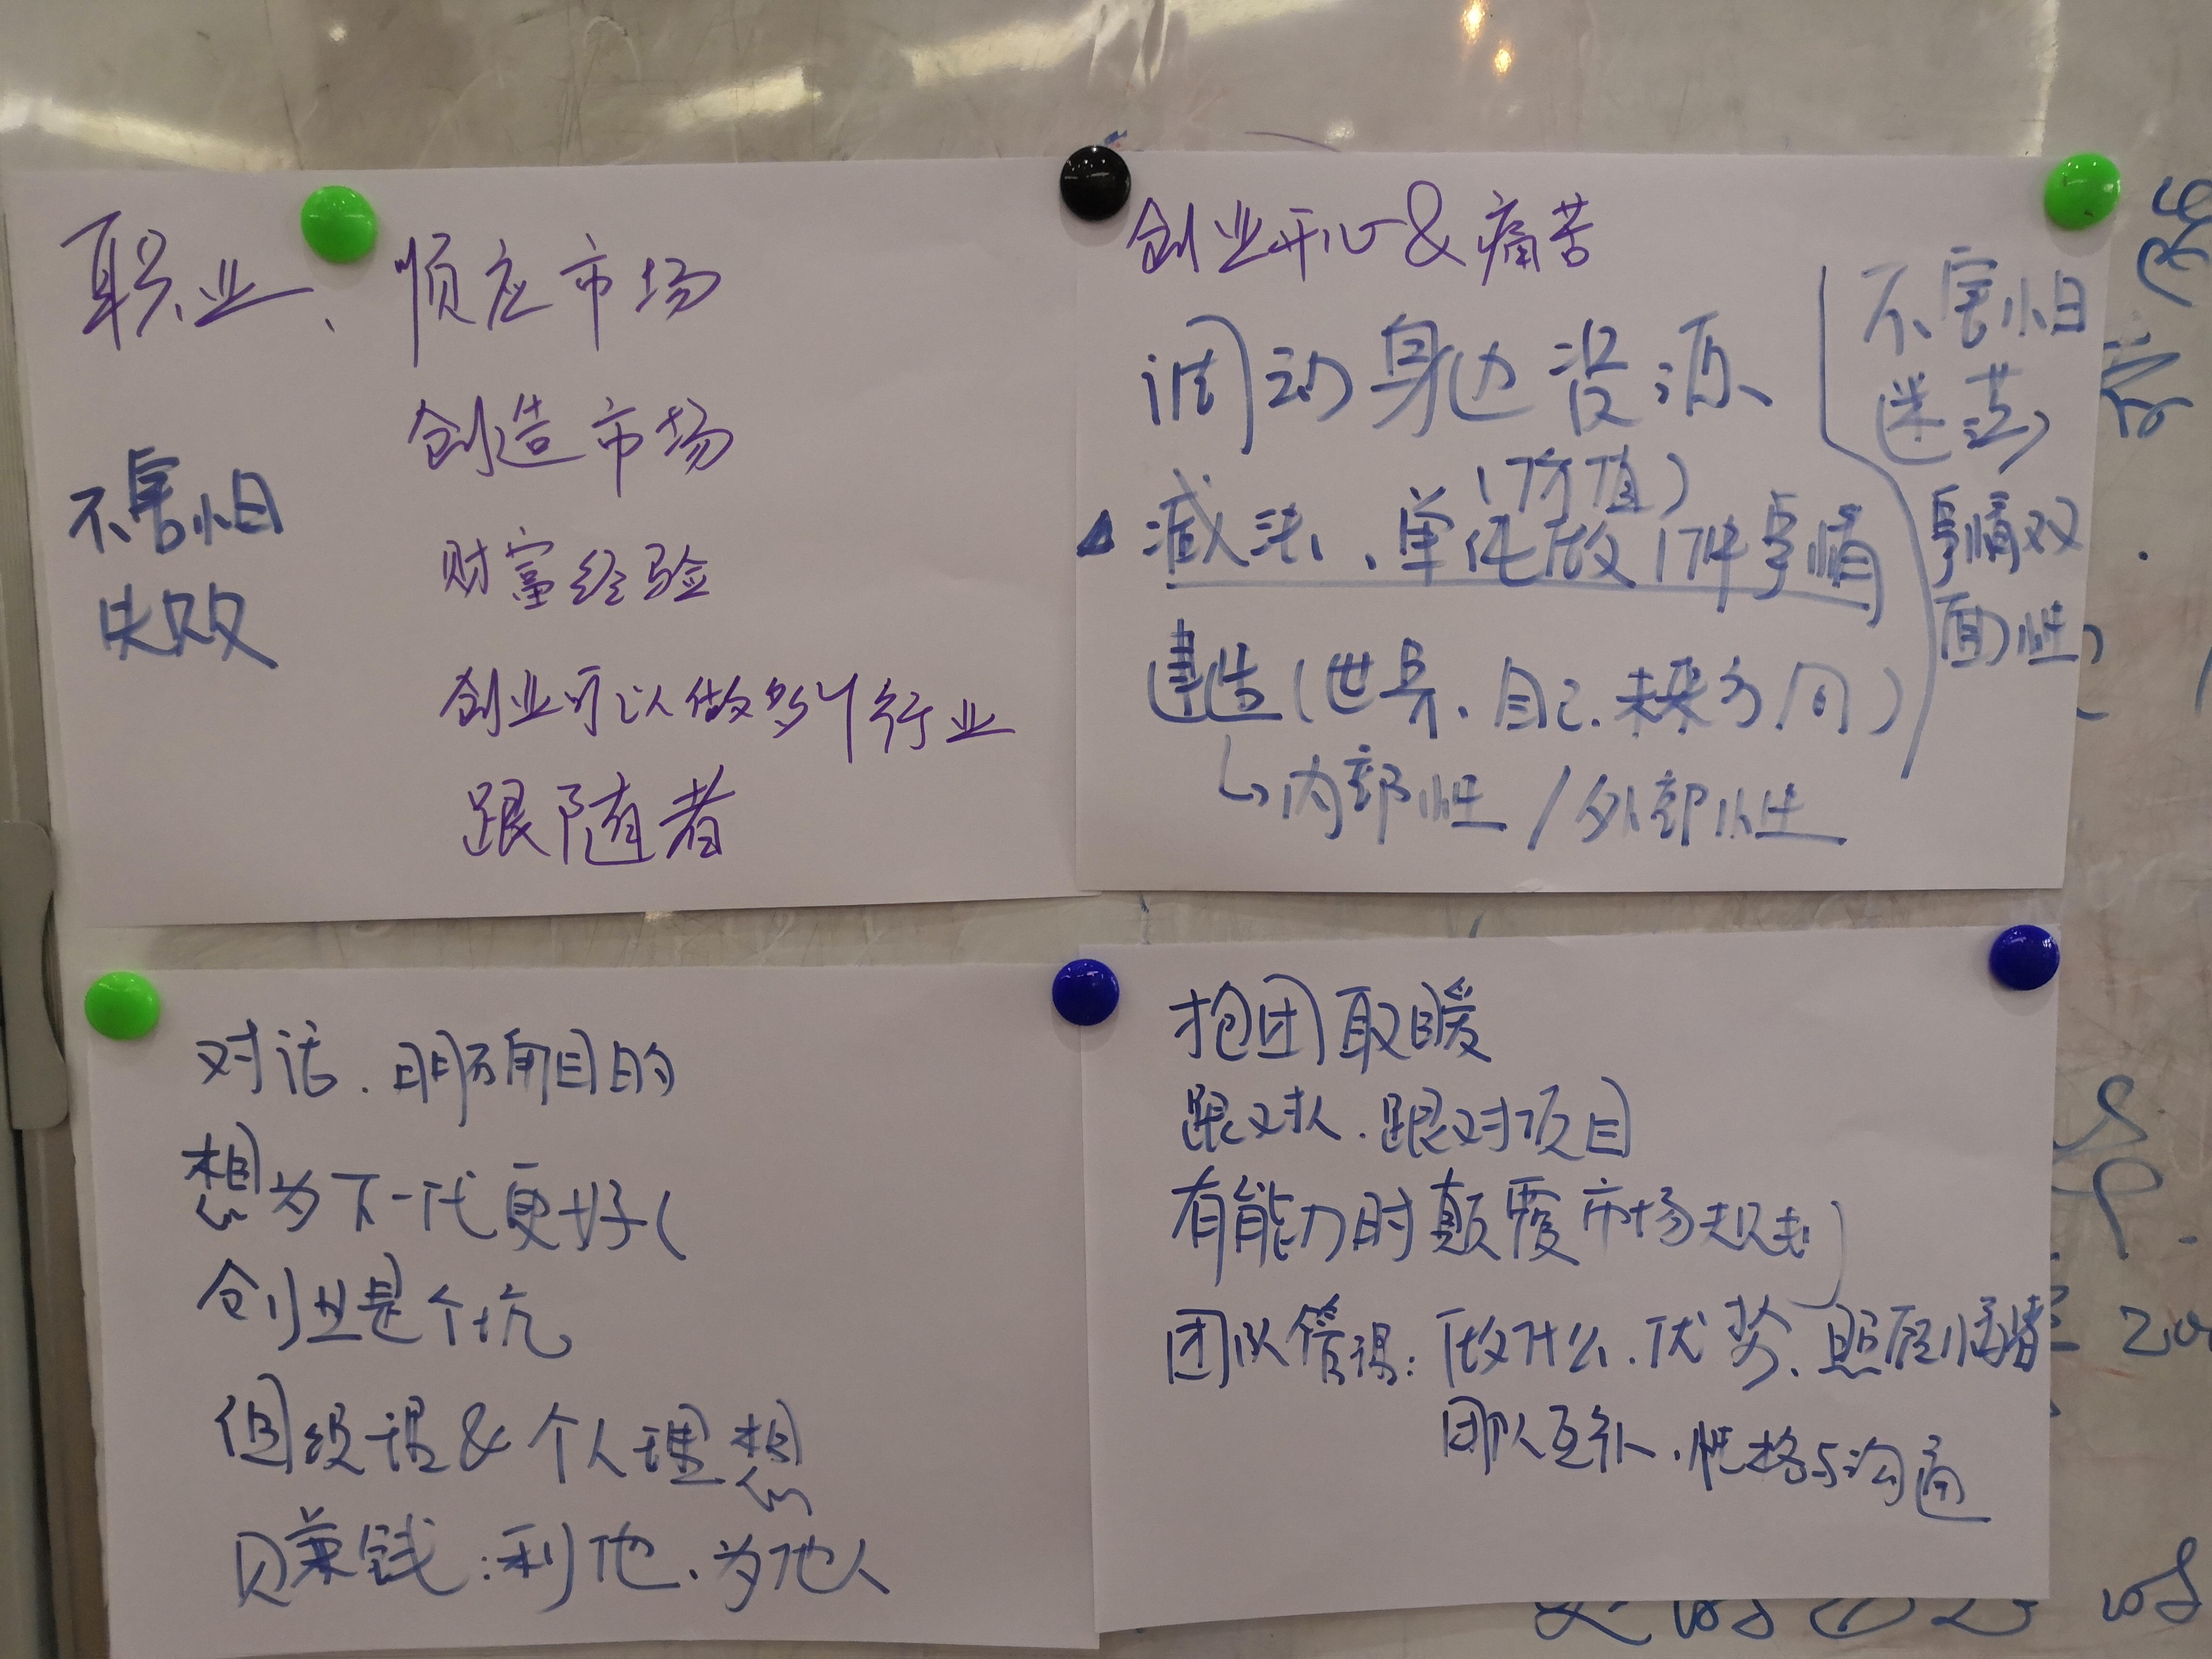 职业、顺应市场
创造市场
财富经验
创业可以做多个行业
跟随者
不害怕
失败
创业开心&痛苦
调动身边资源
(价值)
减法、单纯做1件事情
建造(世界、自己、未来方向)
↳内部性/外部性
不害怕
迷茫
事情双
面性
对话、明确目的
想为下一代更好(
创业是个坑
但没错&个人理想
赚钱:利他、为他人
抱团取暖
跟对人、跟对项目
有能力时颠覆市场规则
团队管理:做什么、优势、照顾情绪
团队互补、性格与沟通